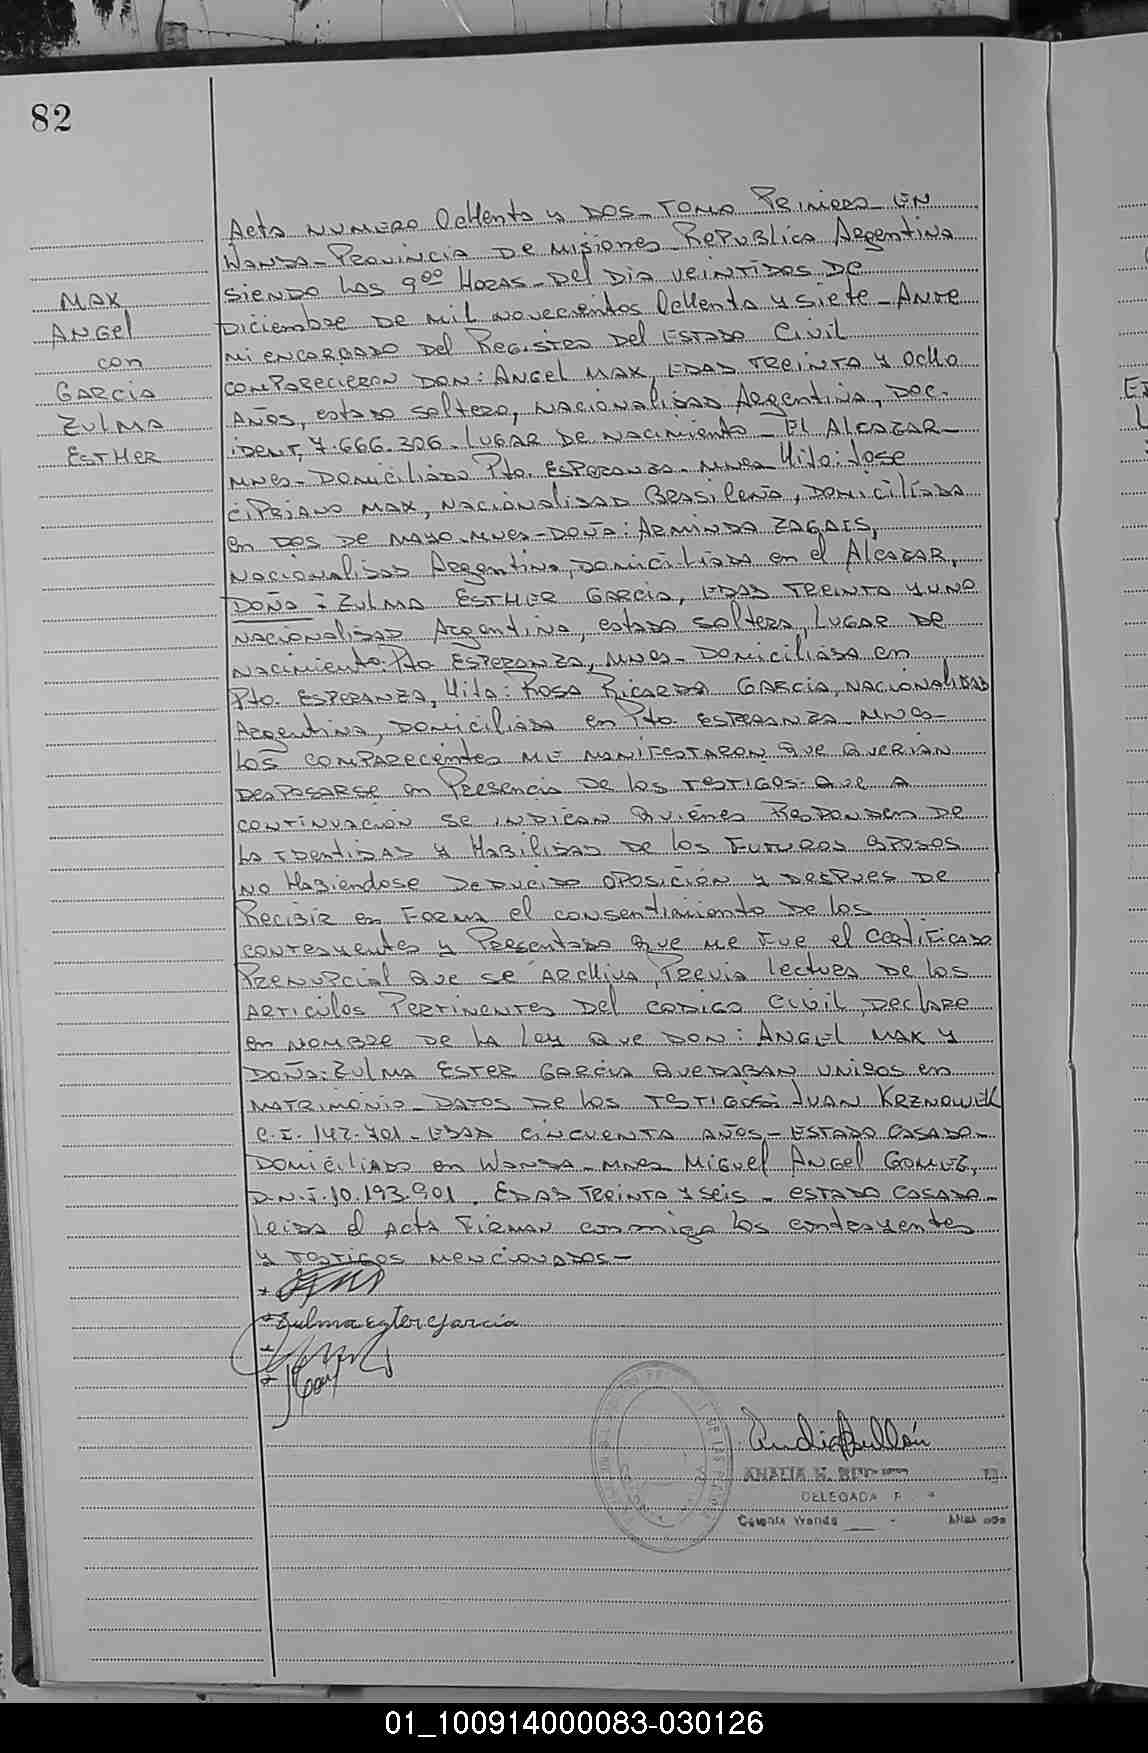 82
MAX
ANGEL
con
GARCIA
ZULMA
ESTHER
Acta NUMERO OcHenta y DOS - TOMO PRIMERO - EN
WANDA - PROVINCIA DE MISIONES - REPUBLICA Argentina
SIENDO LAS 9⁰⁰ HORAS - Del DIA VEINTIDOS DE
Diciembre DE MIL NOVECIENTOS OcHenta y SIETE - ANTE
MI ENCARGADO Del REGISTRO Del ESTADO CIVIL
COMPARECIERON DON: ANGEL MAX, EDAD TREINTA Y OCHO
AÑOS, estado SOLTERO, NACIONALIDAD Argentina, DOC.
IDENT, 7.666.306. LUGAR DE NACIMIENTO - El ALCAZAR -
MNES - DOMICILIADO Pto. ESPERANZA - MNES HIJO: JOSE
CIPRIANO MAX, NACIONALIDAD BRASILEÑA, DOMICILIADA
en DOS DE MAYO - MNES - DOÑA: ARMINDA ZAGAIS,
NACIONALIDAD Argentina, DOMICILIADA en el ALCAZAR,
DOÑA: ZULMA ESTHER GARCIA, EDAD TREINTA Y UNO
NACIONALIDAD Argentina, estado SOLTERA, LUGAR DE
NACIMIENTO: Pto ESPERANZA, MNES - DOMICILIADA en
Pto. ESPERANZA, HIJA: ROSA RICARDA GARCIA, NACIONALIDAD
Argentina, DOMICILIADA en Pto. ESPERANZA MNES -
LOS COMPARECIENTES ME MANIFESTARON QUE QUERIAN
DESPOSARSE en PRESENCIA DE LOS TESTIGOS: QUE A
CONTINUACION SE INDICAN QUIENES RESPONDEN DE
LA IDENTIDAD Y HABILIDAD DE LOS FUTUROS ESPOSOS
NO HABIENDOSE DEDUCIDO OPOSICIÓN Y DESPUES DE
RECIBIR en FORMA el CONSENTIMIENTO DE LOS
CONTRAYENTES Y PRESENTADO QUE ME FUE el CERTIFICADO
PRENUPCIAL QUE SE ARCHIVA, PREVIA LECTURA DE LOS
ARTICULOS PERTINENTES DEL CODIGO CIVIL, DECLARE
en NOMBRE DE LA LEY QUE DON: ANGEL MAX Y
DOÑA: ZULMA ESTER GARCIA QUEDABAN UNIDOS en
MATRIMONIO - DATOS DE LOS TESTIGOS: JUAN KRZNOWEK
C.I. 147.701 - EDAD CINCUENTA AÑOS - ESTADO CASADO -
DOMICILIADO en WANDA - MNES MIGUEL ANGEL GOMEZ,
D.N.I. 10.193.901. EDAD TREINTA Y SEIS - ESTADO CASADO -
LEIDA el ACTA FIRMAN conmigo los contrayentes
y TESTIGOS MENCIONADOS -
Zulma Ester Garcia
ANALIA
DELEGADA
Colonia Wanda
01_100914000083-030126